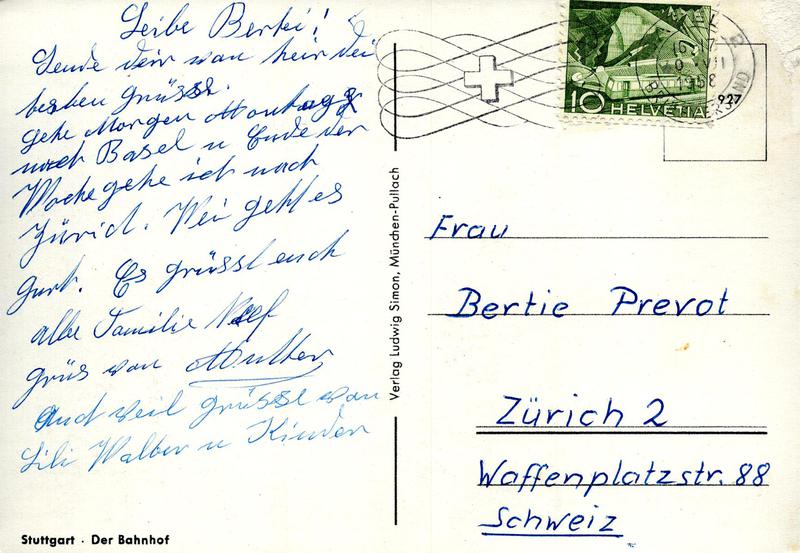 Leibe Bertei!
Sende deir von heir dei
besten grüsse.
gehe Morgen Montag
nach Basel u Ende der
Woche gehe ich nach
Zürich. Mir geht es
gurt. Es grüsst euch
alle Familie
grüs von Mutter
Auch veil grüsse von
Lili Walter u Kinder
Stuttgart · Der Bahnhof
Verlag Ludwig Simon, München-Pullach
10 HELVETIA
1958
927
Frau
Bertie Prevot
Zürich 2
Waffenplatzstr. 88
Schweiz